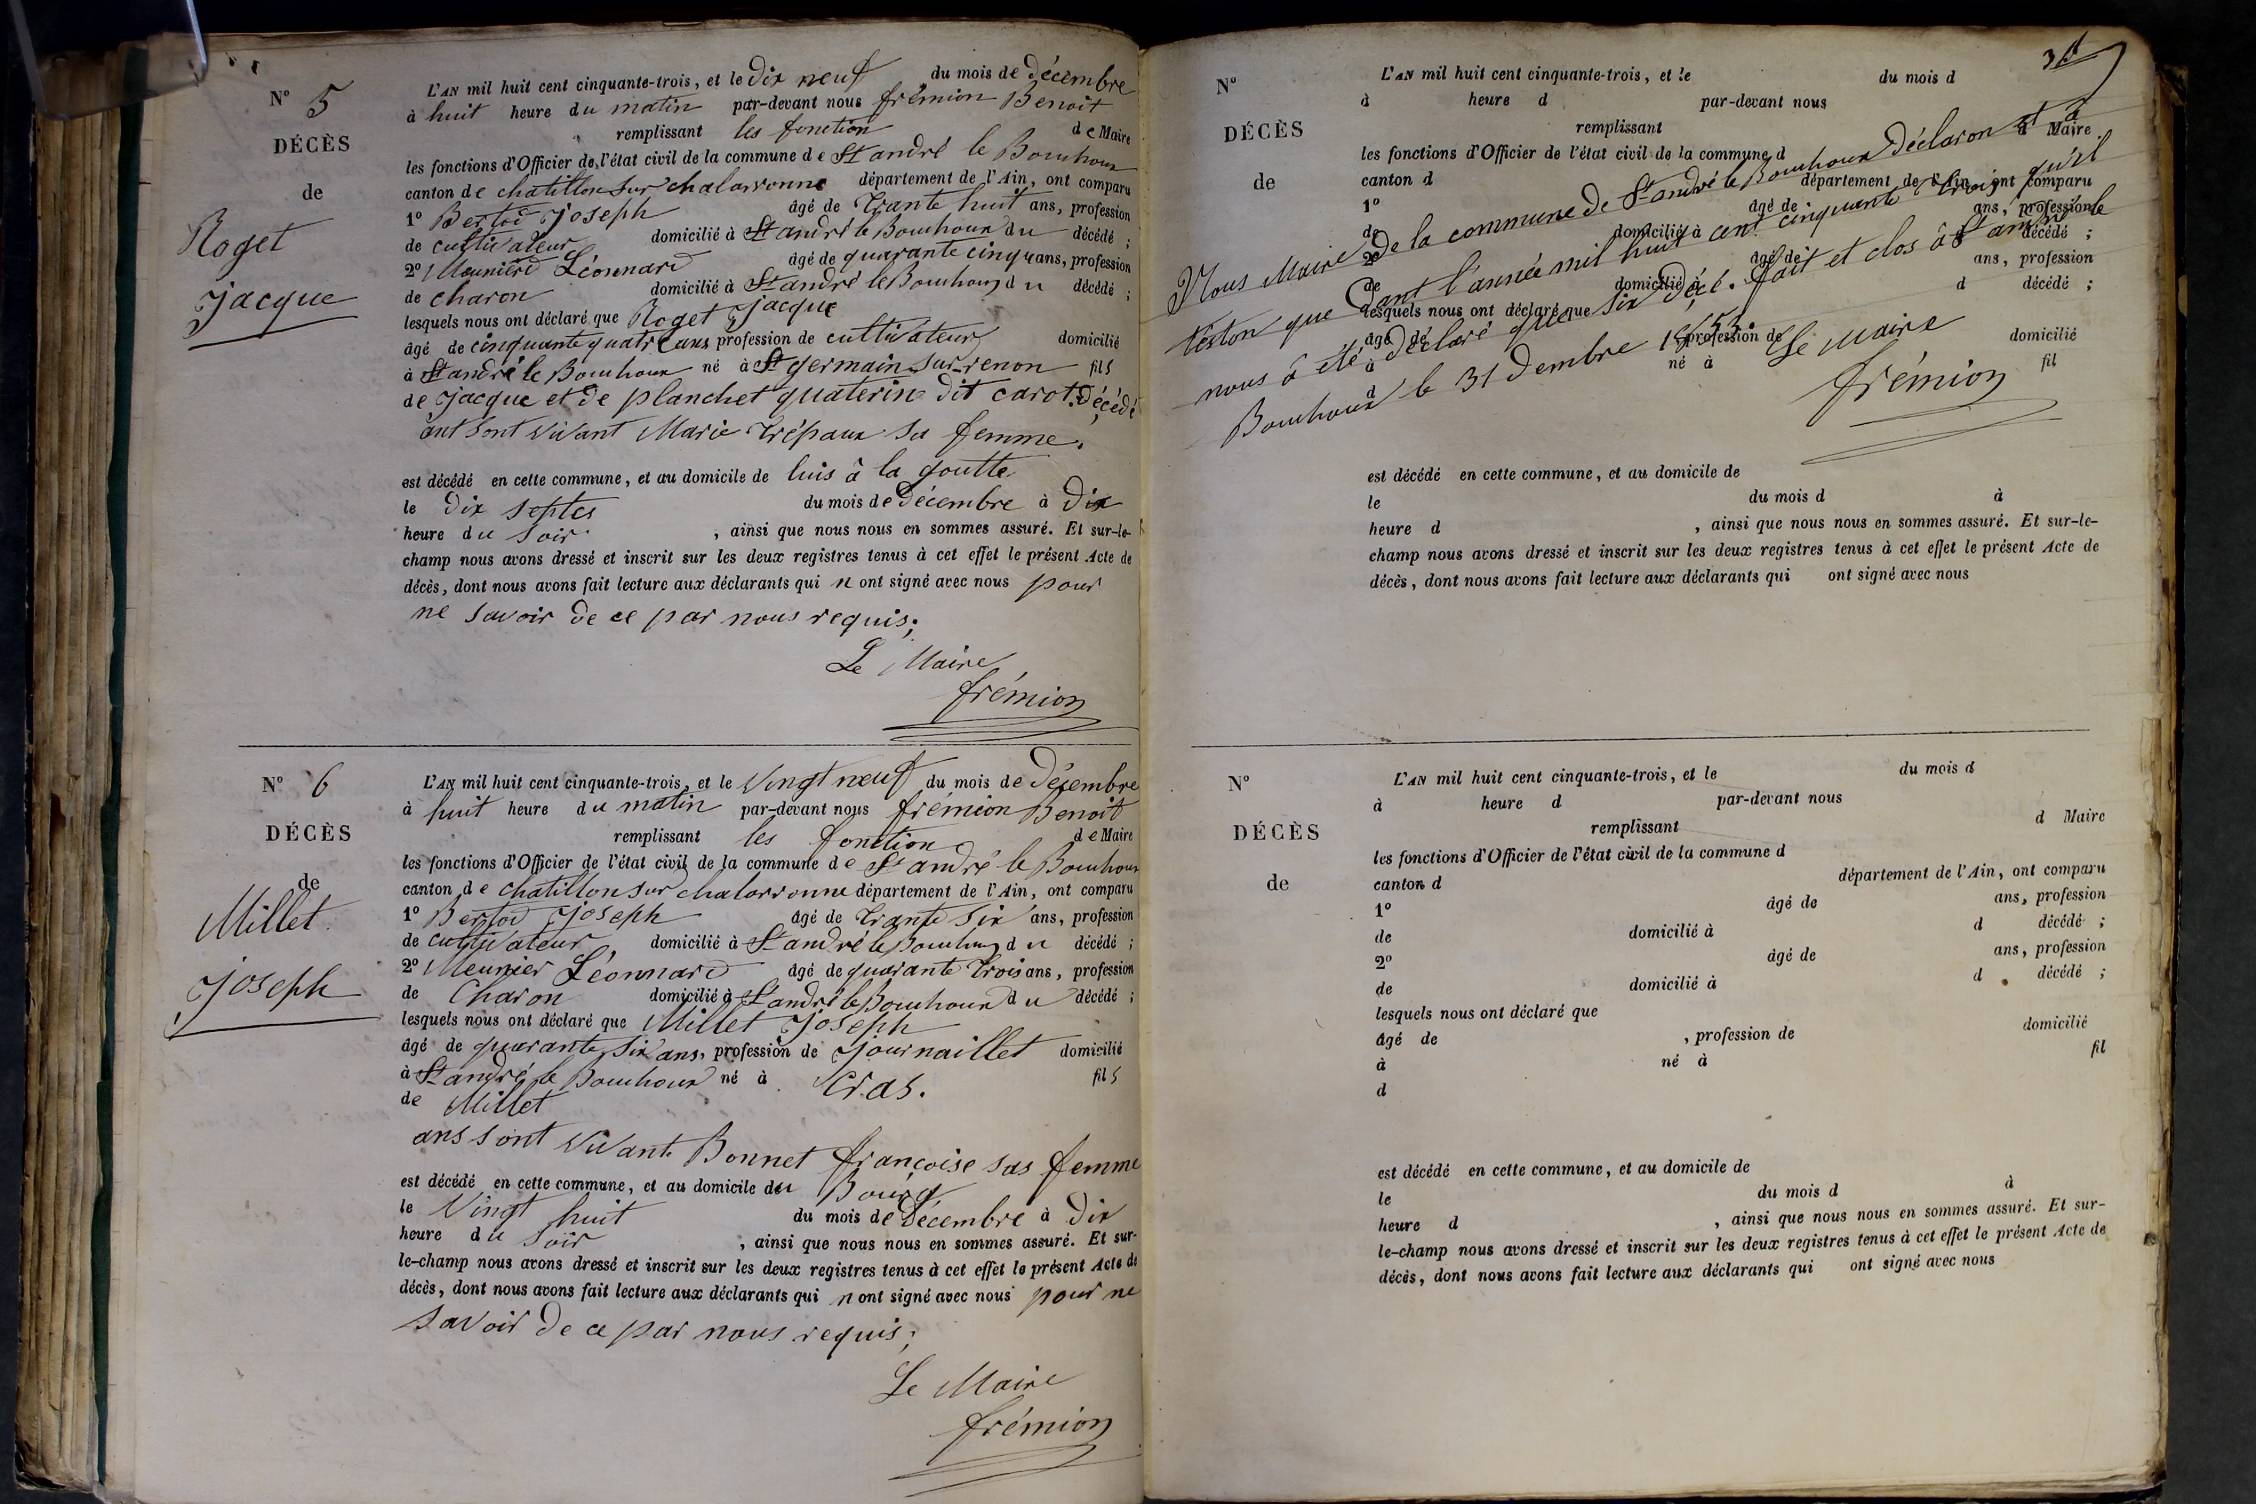 N° 5
DÉCÈS
de
Roget
jacque
L'AN mil huit cent cinquante-trois, et le dix neuf du mois de décembre
à huit heure du matin par-devant nous frémion Benoit
remplissant les fonction de Maire
les fonctions d'Officier de l'état civil de la commune de St andré le Bouchoux
canton de chatillon sur chalaronne département de l'Ain, ont comparu
1° Bertod joseph âgé de trante huit ans, profession
de cultivateur domicilié à St andré le Bouchoux du décédé ;
2° Meunierd Léonnard âgé de quarante cinq ans, profession
de charon domicilié à St andré le Bouchoux du décédé ;
lesquels nous ont déclaré que Roget jacque
âgé de cinquante quatre ans profession de cultivateur domicilié
à St andré le Bouchoux né à St germain sur renon fils
de jacque et de planchet quaterine dit carot. décédé
ant sont vivant Marie trépaux sa femme.
est décédé en cette commune, et au domicile de luis à la goutte
le dix septes du mois de décembre à dix
heure du soir , ainsi que nous nous en sommes assuré. Et sur-le-
champ nous avons dressé et inscrit sur les deux registres tenus à cet effet le présent Acte de
décès, dont nous avons fait lecture aux déclarants qui n ont signé avec nous pour
ne savoir de ce par nous requis ;
Le Maire
frémion
N° 6
DÉCÈS
de
Millet
joseph
L'AN mil huit cent cinquante-trois, et le vingt neuf du mois de décembre
à huit heure du matin par-devant nous frémion Benoit
remplissant les fonction de Maire
les fonctions d'Officier de l'état civil de la commune de St andré le Bouchoux
canton de chatillon sur chalaronne département de l'Ain, ont comparu
1° Bertod joseph âgé de trante six ans, profession
de cultivateur domicilié à St andré le Bouchoux du décédé ;
2° Meunier Léonnard âgé de quarante trois ans, profession
de Charon domicilié à St andré le Bouchoux du décédé ;
lesquels nous ont déclaré que Millet joseph
âgé de quarante six ans, profession de journaillet domicilié
à St andré le Bouchoux né à Cras. fils
de Millet
ans sont vivant Bonnet françoise sas femme
est décédé en cette commune, et au domicile du Bourg
le vingt huit du mois de décembre à dix
heure du soir , ainsi que nous nous en sommes assuré. Et sur-
le-champ nous avons dressé et inscrit sur les deux registres tenus à cet effet le présent Acte de
décès, dont nous avons fait lecture aux déclarants qui n ont signé avec nous pour ne
savoir de ce par nous requis ;
Le Maire
frémion
N°
DÉCÈS
de
L'AN mil huit cent cinquante-trois, et le du mois d
à heure d par-devant nous
remplissant d Maire
les fonctions d'Officier de l'état civil de la commune d
canton d département de l'Ain, ont comparu
1° âgé de ans, profession
de domicilié à d décédé ;
2° âgé de ans, profession
de domicilié à d décédé ;
lesquels nous ont déclaré que
âgé de profession de domicilié
à né à fil
d
Nous Maire de la commune de St andré le Bouchoux déclaron et a
teston que dant l'année mil huit cent cinquante trois qu'il
nous â été déclaré que six décé. fait et clos â St andré le
Bouchoux le 31 dembre 1853. Le Maire
frémion
est décédé en cette commune, et au domicile de
le du mois d à
heure d , ainsi que nous nous en sommes assuré. Et sur-le-
champ nous avons dressé et inscrit sur les deux registres tenus à cet effet le présent Acte de
décès, dont nous avons fait lecture aux déclarants qui ont signé avec nous
N°
DÉCÈS
de
L'AN mil huit cent cinquante-trois, et le du mois d
à heure d par-devant nous
remplissant d Maire
les fonctions d'Officier de l'état civil de la commune d
canton d département de l'Ain, ont comparu
1° âgé de ans, profession
de domicilié à d décédé ;
2° âgé de ans, profession
de domicilié à d décédé ;
lesquels nous ont déclaré que
âgé de , profession de domicilié
à né à fil
d
est décédé en cette commune, et au domicile de
le du mois d à
heure d , ainsi que nous nous en sommes assuré. Et sur-
le-champ nous avons dressé et inscrit sur les deux registres tenus à cet effet le présent Acte de
décès, dont nous avons fait lecture aux déclarants qui ont signé avec nous